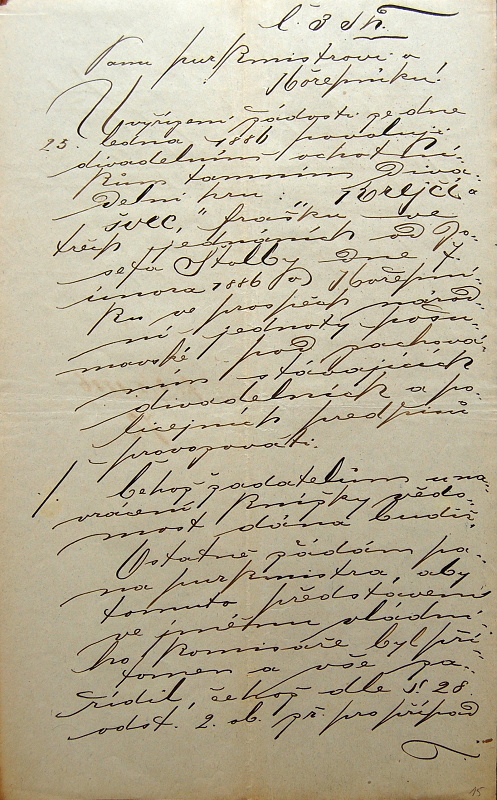 č. 3 th.
Panu purkmistrovi v
Hořepníku!
Vyřízení žádosti ze dne
23. ledna 1886 povoluji
divadelním ochotní-
kům tamním diva-
delní hru: „Krejčí a
švec,“ frašku ve
třech jednáních od Jo-
sefa Štolby dne 7.
února 1886 v Hořepní-
ku ve prospěch národ-
ní jednoty pošu-
mavské pod zachová-
ním stávajících
divadelních a po-
licejních předpisů
provozovati.
/. Čehož žadatelům u na-
vrácení knížky vědo-
most dána budiž.
Ostatně žádám pa-
na purkmistra, aby
tomuto představení
ve jménu vládní-
ho komisaře byl pří-
tomen a vše za-
řídil, čehož dle § 28
odst. 2. ob. zř. pro případ
15